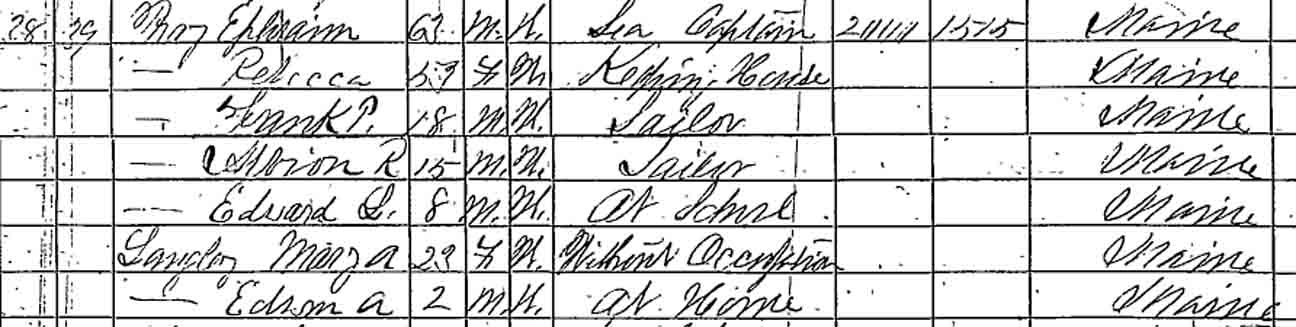 28 29 Ray Ephraim 62 M. W. Sea Captain 1515 Maine
— Rebecca 59 F W. Keeping House Maine
— Frank P. 18 M. W. Sailor Maine
— Albion R 15 M. W. Sailor Maine
— Edward L. 8 M. W. At School Maine
Langley Mary A 23 F W. Without Occupation Maine
— Edson A 2 M. W. At Home Maine